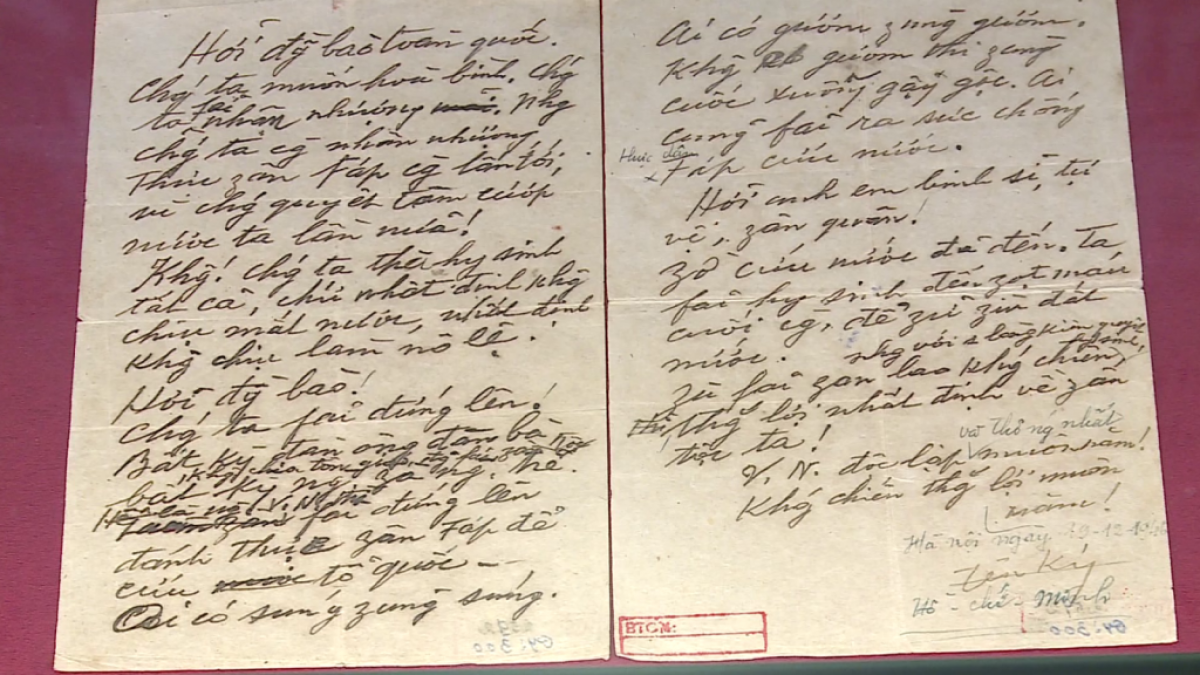 Hỡi đg̀ bào toàn quốc.
Chǵ ta muốn hoà bình. Chǵ
ta fải nhân nhượng. Nhg
chǵ ta cg̀ nhân nhượng
thực zân Fáp cg̀ lấn tới,
vì chǵ quyết tâm cướp
nước ta lần nữa!
Khg! Chǵ ta thà hy sinh
tất cả, chứ nhất định khg
chịu mất nước, nhất định
khg chịu làm nô lệ.
Hỡi đg̀ bào!
Chǵ ta fải đứng lên!
Bất kỳ đàn ông đàn bà
bất kỳ ng̀ già ng̀ trẻ.
Hễ là ng̀ V.N. thì
fải đứng lên
đánh thực zân Fáp để
cứu tổ quốc —
Ai có súng zùng súng.
Ai có gươm zùng gươm.
Khg có gươm thì zùng
cuốc xuổng gậy gộc. Ai
cũng fải ra sức chống
thực dân
Fáp cứu nước.
Hỡi anh em binh sĩ, tự
vệ, zân quân!
Zờ cứu nước đã đến. Ta
fải hy sinh đến zọt máu
cuối cg̀, để zữ zìn đất
nước.
Zù fải zan lao khǵ chiến,
nhg với 1 lòng kiên quyết hy sinh,
thg̀ lợi nhất định về zân
tộc ta!
và thống nhất
V. N. độc lập muôn năm!
Khǵ chiến thg̀ lợi muôn
năm!
Hà nội ngày 19-12-1946
Hồ-chí-Minh
BTCM: